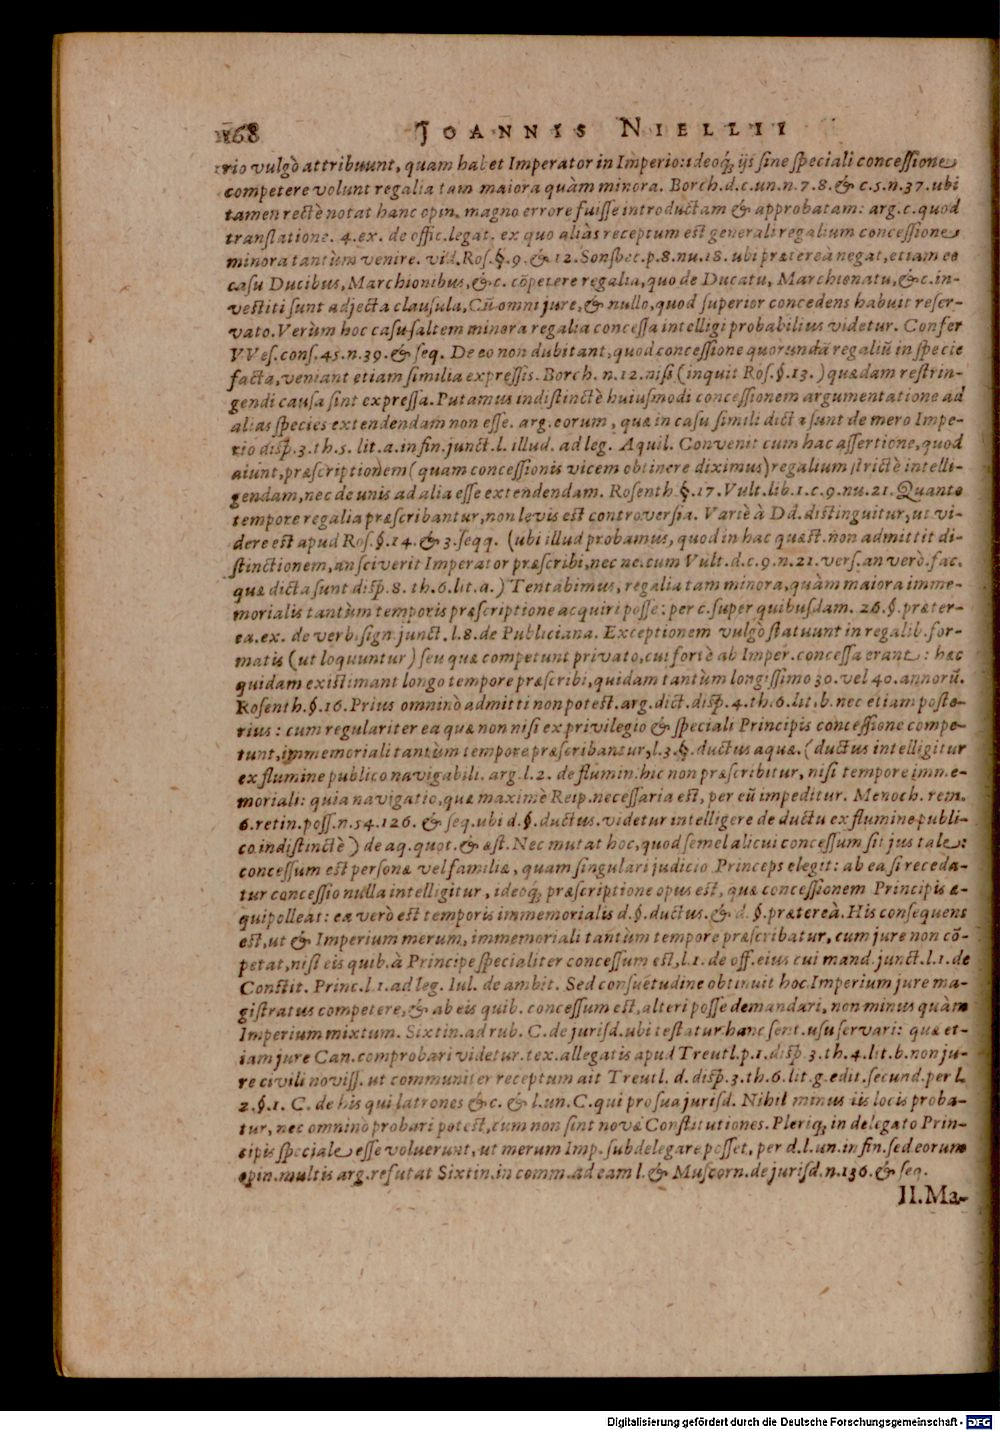 168 JOANNIS NIELLII
rio vulgò attribuunt, quam habet Imperator in Imperio: ideoq́; ijs sine speciali concessione
competere volunt regalia tam maiora quàm minora. Borch. d. c. un. n. 7. 8. & c. 5. n. 37. ubi
tamen rectè notat hanc opin. magno errore fuisse introductam & approbatam: arg. c. quod
translatione. 4. ex. de offic. legat. ex quo aliàs receptum est generali regalium concessione
minora tantùm venire. vid. Ros. §. 9. & 12. Sonsbec. p. 8. nu. 18. ubi prætereà negat, etiam eo
casu Ducibus, Marchionibus, & c. cõpetere regalia, quo de Ducatu, Marchionatu, & c. in-
vestiti sunt adjecta clausula, Cũ omni jure, & nullo, quod superior concedens habuit reser-
vato. Verùm hoc casu saltem minora regalia concessa intelligi probabilius videtur. Confer
VVes. cons. 45. n. 39. & seq. De eo non dubitant, quod concessione quorundã regaliũ in specie
facta, veniant etiam similia expressis. Borch. n. 12. nisi (inquit Ros. §. 13.) quædam restrin-
gendi causa sint expressa. Putamus indistinctè huiusmodi concessionem argumentatione ad
alias species extendendam non esse. arg. eorum, quæ in casu simili dicta sunt de mero Impe-
rio disp. 3. th. 5. lit. a. in fin. junct. l. illud. ad leg. Aquil. Convenit cum hac assertione, quod
aiunt, præscriptionem (quam concessionis vicem obtinere diximus) regalium strictè intelli-
gendam, nec de unis ad alia esse extendendam. Rosenth. §. 17. Vult. lib. 1. c. 9. nu. 21. Quanto
tempore regalia præscribantur, non levis est controversia. Variè à Dd. distinguitur, ut vi-
dere est apud Ros. §. 14. & 3. seqq. (ubi illud probamus, quod in hac quæst. non admittit di-
stinctionem, an sciverit Imperator præscribi, nec ne. cum Vult. d. c. 9. n. 21. vers. an verò. fac.
quæ dicta sunt disp. 8. th. 6. lit. a.) Tentabimus, regalia tam minora, quàm maiora imme-
morialis tantùm temporis præscriptione acquiri posse: per c. super quibusdam. 26. §. præter-
ea. ex. de verb. sign. junct. l. 8. de Publiciana. Exceptionem vulgò statuunt in regalib. for-
matis (ut loquuntur) seu quæ competunt privato, cui fortè ab Imper. concessa erant: hæc
quidam existimant longo tempore præscribi, quidam tantùm longissimo 30. vel 40. annorũ.
Rosenth. §. 16. Prius omninò admitti non potest. arg. dict. disp. 4. th. 6. lit. b. nec etiam poste-
rius: cum regulariter ea quæ non nisi ex privilegio & speciali Principis concessione compe-
tunt, immemoriali tantùm tempore præscribantur, l. 3. §. ductus aquæ. (ductus intelligitur
ex flumine publico navigabili. arg. l. 2. de flumin. hic non præscribitur, nisi tempore imme-
moriali: quia navigatio, quæ maximè Reip. necessaria est, per eũ impeditur. Menoch. rem.
6. retin. poss. n. 54. 126. & seq. ubi d. §. ductus. videtur intelligere de ductu ex flumine publi-
co indistinctè) de aq. quot. & æst. Nec mutat hoc, quod semel alicui concessum sit jus tale:
concessum est personæ vel familiæ, quam singulari judicio Princeps elegit: ab ea si receda-
tur concessio nulla intelligitur, ideoq́; præscriptione opus est, quæ concessionem Principis æ-
quipolleat: ea verò est temporis immemorialis d. §. ductus. & d. §. prætereà. His consequens
est, ut & Imperium merum, immemoriali tantùm tempore præscribatur, cum jure non cõ-
petat, nisi eis quib. à Principe specialiter concessum est, l. 1. de off. eius cui mand. junct. l. 1. de
Constit. Princ. l. 1. ad leg. Iul. de ambit. Sed consuetudine obtinuit hoc Imperium jure ma-
gistratus competere, & ab eis quib. concessum est, alteri posse demandari, non minus quàm
Imperium mixtum. Sixtin. ad rub. C. de jurisd. ubi testatur hanc sent. usu servari: quæ et-
iam jure Can. comprobari videtur. tex. allegatis apud Treutl. p. 1. disp. 3. th. 4. lit. b. non ju-
re civili noviss. ut communiter receptum ait Treutl. d. disp. 3. th. 6. lit. g. edit. secund. per l.
2. §. 1. C. de his qui latrones & c. & l. un. C. qui pro sua jurisd. Nihil minus iis locis proba-
tur, nec omninò probari potest, cum non sint novæ Constitutiones. Pleriq́; in delegato Prin-
cipis speciale esse voluerunt, ut merum Imp. subdelegare posset, per d. l. un. in fin. sed eorum
opin. multis arg. refutat Sixtin. in comm. ad eam l. & Muscorn. de jurisd. n. 136. & seq.
II. Ma-
Digitalisierung gefördert durch die Deutsche Forschungsgemeinschaft - DFG